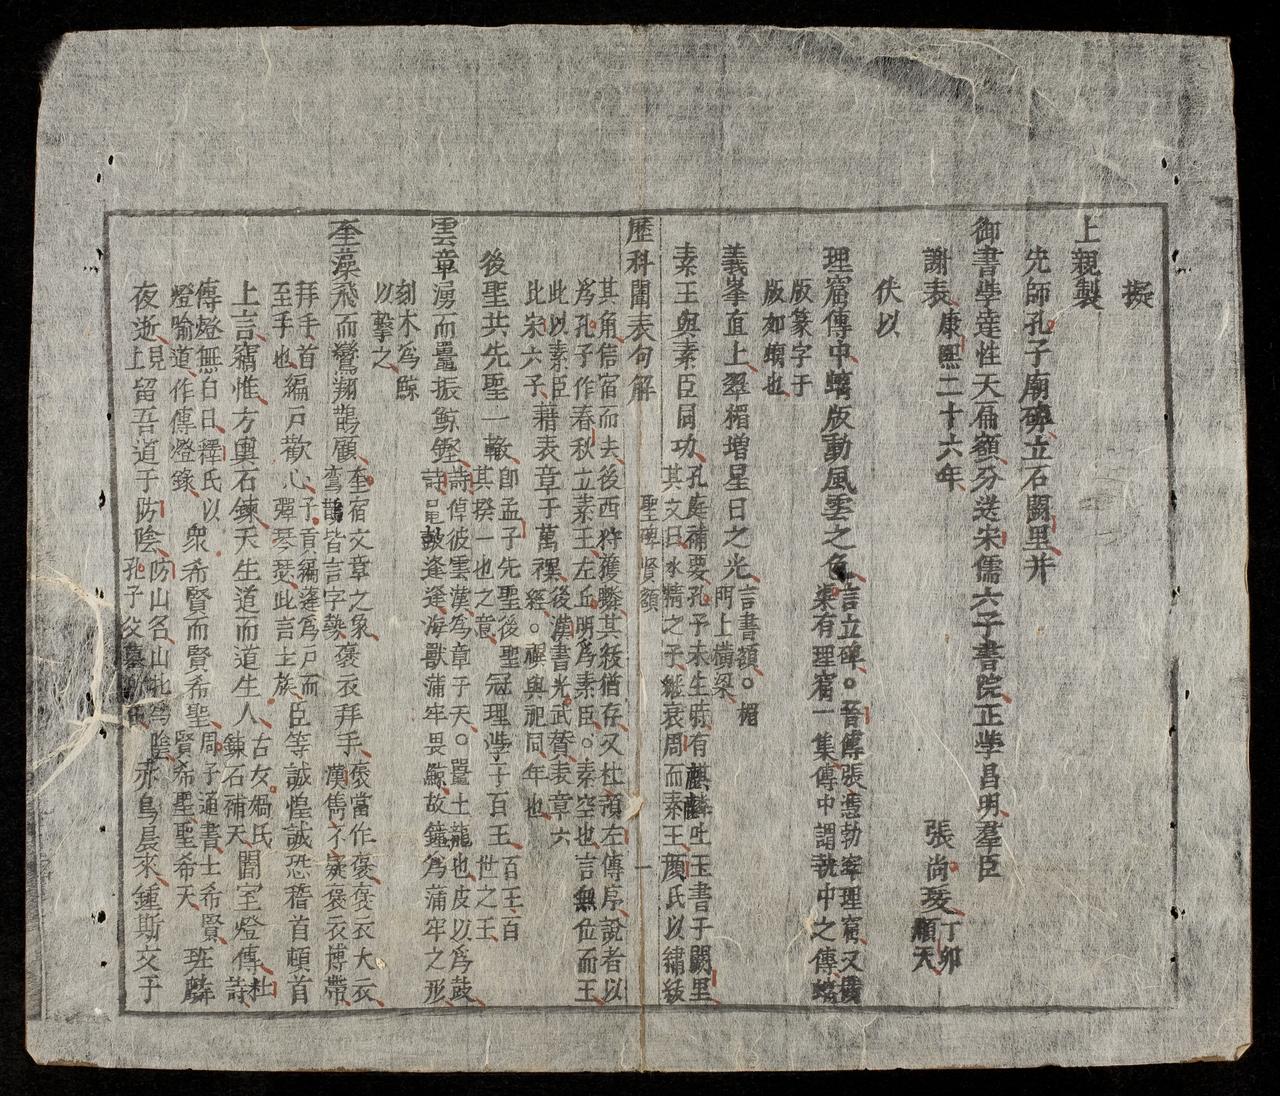 擬
上親製
先師孔子廟碑立石闕里并
御書學達性天扁額分送宋儒六子書院正學昌明羣臣
謝表 康熙二十六年 張尚瑗 丁卯
順天
伏以
理窟傳中螭版動風雲之色 言立碑。晉傅張憑勃窣理窟又
集有理窟一集傳中謂執中之傳螭
版篆字于
版如螭也
義峯直上翠楣增星日之光 言書額。楣
門上橫梁
素王與素臣同功 孔庭補要孔子未生時有麒麟吐玉書于闕里
其文曰水精之子繼衰周而素王顏氏以繡紱
歷科闈表句解 聖碑賢額 一
其角信宿而去後西狩獲麟其紱猶存又杜預左傳序說者以
爲孔子作春秋立素王左丘明爲素臣。素空也言無位而王
此以素臣
此宋六子 籍表章于萬禩 後漢書光武賛表章六
經。禩與祀同年也
後聖共先聖一轍 卽孟子先聖後聖
其揆一也之意 冠理學于百王 百王百
世之王
雲章湧而鼉振鯨鏗 詩倬彼雲漢爲章于天。鼉土龍也皮以爲鼓
詩鼉鼓逢逢海獸蒲牢畏鯨故鐘爲蒲牢之形
刻木爲鯨
以擊之
奎藻飛而鸞翔鵲顧 奎宿文章之象
鸞鵲皆言字勢 褒衣拜手 褒當作襃襃衣大衣
漢雋不疑襃衣博帶
拜手首
至手也 編戶歡心 子貢編蓬爲戶而
彈琴瑟此言主族 臣等誠惶誠恐稽首頓首
上言竊惟方輿石鍊天生道而道生人 古女媧氏
鍊石補天 闇室燈傳 杜
詩
傳燈無白日釋氏以
燈喻道作傳燈錄 衆希賢而賢希聖 周子通書士希賢
賢希聖聖希天 班麟
夜逝 見
上 留吾道于防陰 防山名山北爲陰
孔子父墓所在 赤鳥晨來鍾斯文于